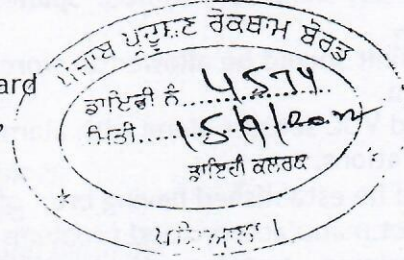 ard
ਪੰਜਾਬ ਪ੍ਰਦੂਸ਼ਣ ਰੋਕਥਾਮ ਬੋਰਡ
ਡਾਇਰੀ ਨੰ......4574
ਮਿਤੀ......
ਡਾਇਰੀ ਕਲਰਕ
ਪਟਿਆਲਾ।